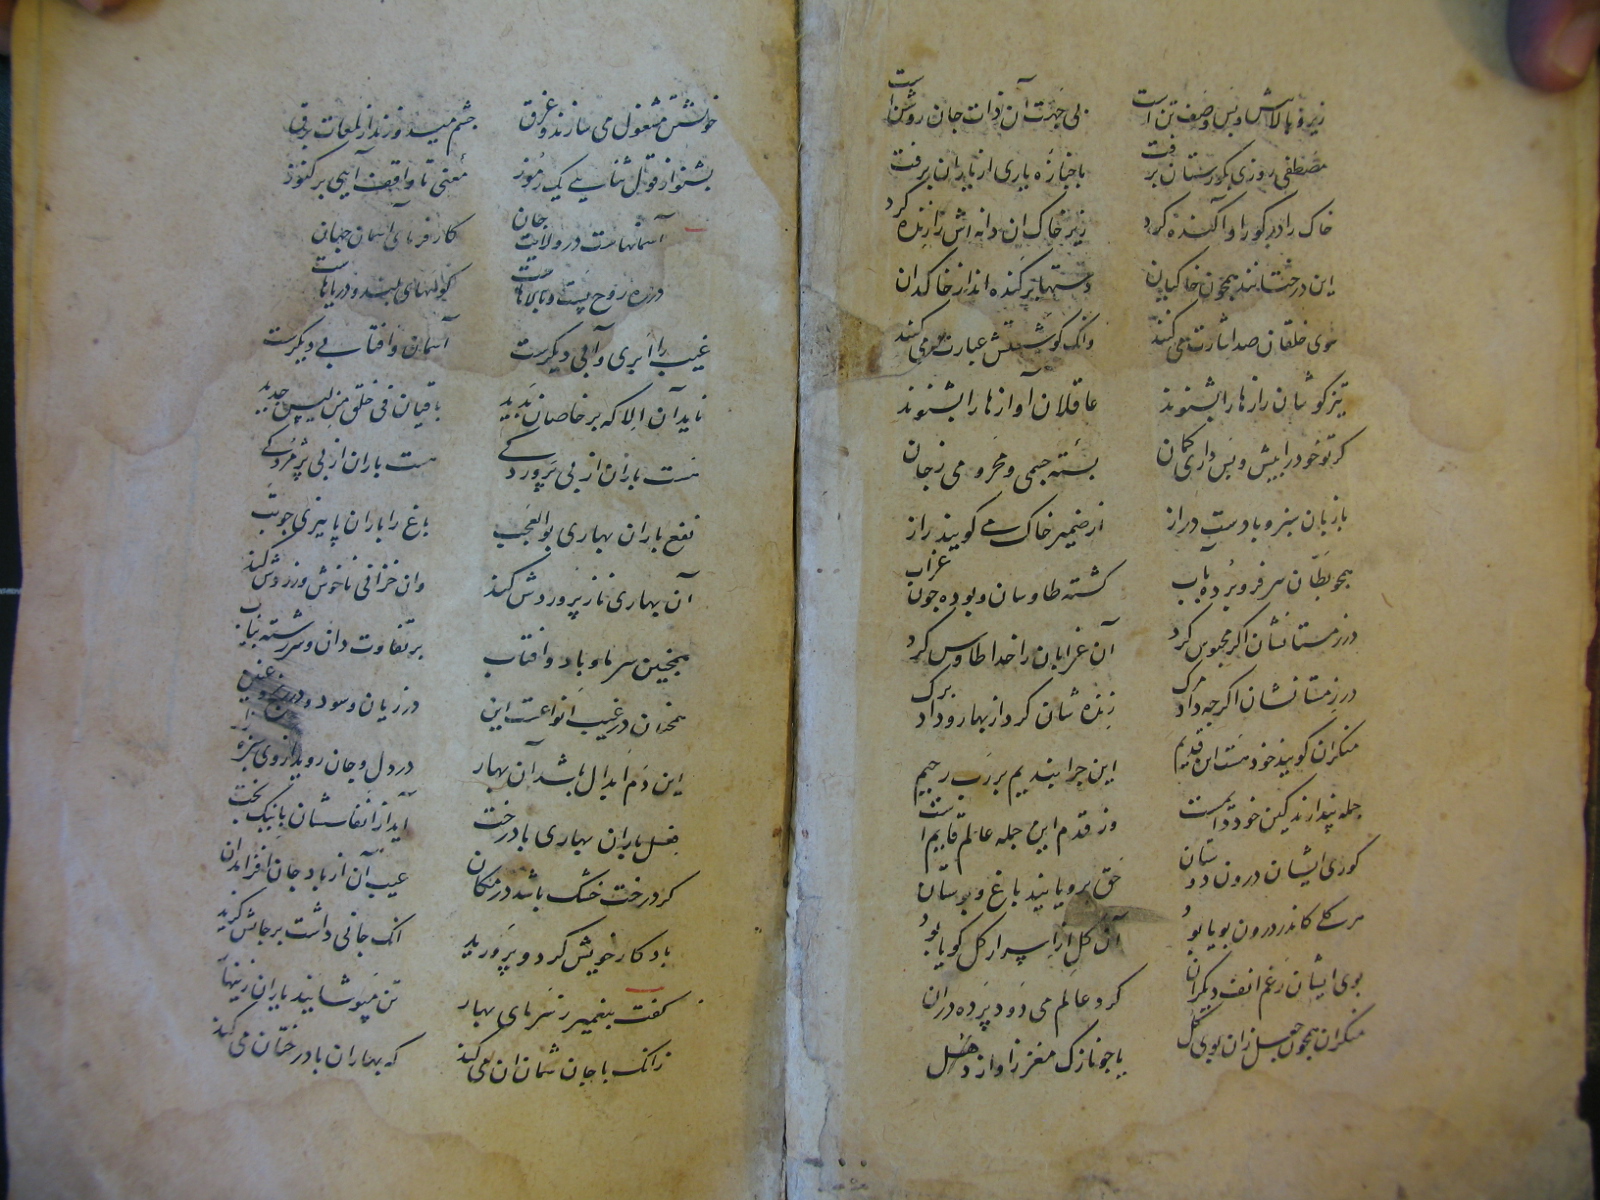 زیر و بالا پیش و پس وصف تن است	بی جهت آن ذات جان روشن است
مصطفی روزی بکورستان برفت	با جنازه یاری از یاران برفت
خاک را در کور او آکنده کرد	زیر خاک ان دانه اش را زنده کرد
این درختانند همچون خاکیان	دستها بر کنده اند از خاکدان
سوی خلقان صد اشارت می کنند	وانک کوشستش عبارت می کنند
تیز کوشان رازها را بشنوند	عاقلان آوازها را بشنوند
کر تو خود را پیش و پس داری کمان	بسته جسمی و محرومی ز جان
با زبان سبز و با دست دراز	از ضمیر خاک می کویند راز
همچو بطان سر فرو برده بآب	کشته طاوسان و بوده چون غراب
در زمستانشان اکر محبوس کرد	آن غرابان را خدا طاوس کرد
در زمستانشان اکرچه داد مرک	زنده شان کرد از بهار و داد برک
منکران کویند خود هست این قدیم	این چرا بندیم بر رب رحیم
جمله پندارند کین خود دایمست	وز قدم این جمله عالم قایم است
کوری ایشان درون دوستان	حق برویانید باغ و بوستان
هر کلی کاندر درون بویا بود	آن کل از اسرار کل کویا بود
بوی ایشان رغم انف دیکران	کرد عالم می دود پرده دران
منکران همچون جعل زان بوی کل	یا چو نازک مغز از آواز دهل
خویشتن مشغول می سازند و غرق	چشم میدوزند از لمعات برق
بشنو از قول سنایی یک رموز	معنی تا واقف آیی بر کنوز
آسمانهاست در ولایت جان	کارفرمای آسمان جهان
در ره روح پست و بالاهاست	کوههای بلند و دریاهاست
غیب را ابری و آبی دیکرست	آسمان و آفتابی دیکرست
ناید آن الا که بر خاصان پدید	باقیان فی خلق من لبس جدید
هست باران از پی پروردکی	هست باران از پی پژمردکی
نفع باران بهاری بوالعجب	باغ را باران پاییزی چو تب
آن بهاری نازپروردش کند	وان خزانی ناخوش و زردش کند
همچنین سرما و باد و آفتاب	بر تفاوت دان و سررشته بیاب
همچنان در غیب انواعست این	در زیان و سود و در
این دم ابدال باشد آن بهار	در دل و جان روید از وی سبزه زار
فعل باران بهاری با درخت	آید از انفاسشان با نیک بخت
کر درخت خشک باشد در مکان	عیب آن از باد جان افزا مدان
باد کار خویش کرد و پرورید	انک جانی داشت بر جانش کزید
کفت پیغمبر ز سرمای بهار	تن مپوشانید یاران زینهار
زانک با جان شما آن می کند	که بهاران با درختان می کند